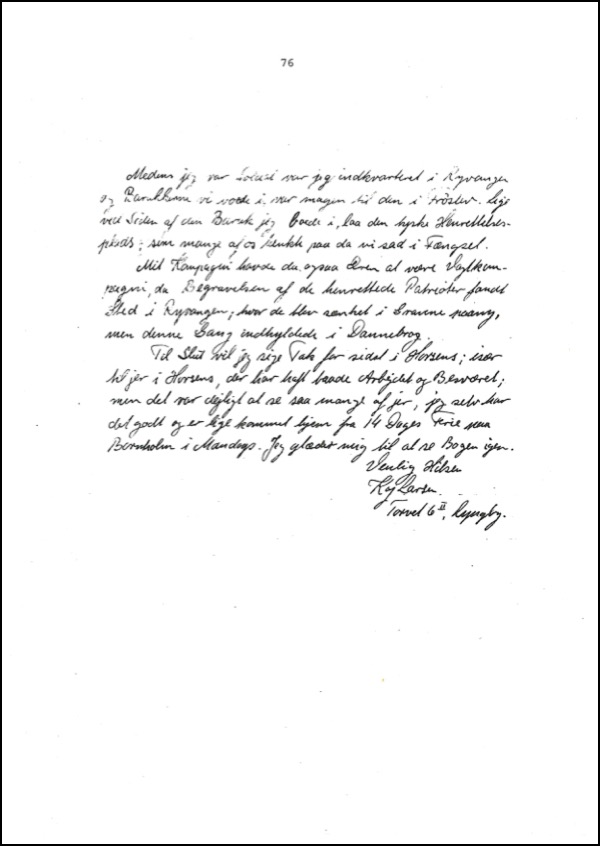 76
Medens jeg var Soldat var jeg indkvarteret i Ryvangen
og Barakkerne vi boede i, var magen til dem i Frøslev. Lige
ved Siden af den Barak jeg boede i, laa den tyske Henrettelses-
plads; som mange af os tænkte paa da vi sad i Fængsel.
Mit Kompagni havde da ogsaa Æren at være Vagtkom-
pagni, da Begravelsen af de henrettede Patrioter fandt
Sted i Ryvangen; hvor de blev sænket i Graven paany,
men denne Gang indhyldede i Dannebrog.
Til Slut vil jeg sige Tak for sidst i Horsens; især
til jer i Horsens, der har haft baade Arbejdet og Besværet;
men det var dejligt at se saa mange af jer, jeg selv har
det godt og er lige kommet hjem fra 14 Dages Ferie paa
Bornholm i Mandags. Jeg glæder mig til at se Bogen igen.
Venlig Hilsen
Kaj Larsen.
Torvet 6 II, Lyngby.